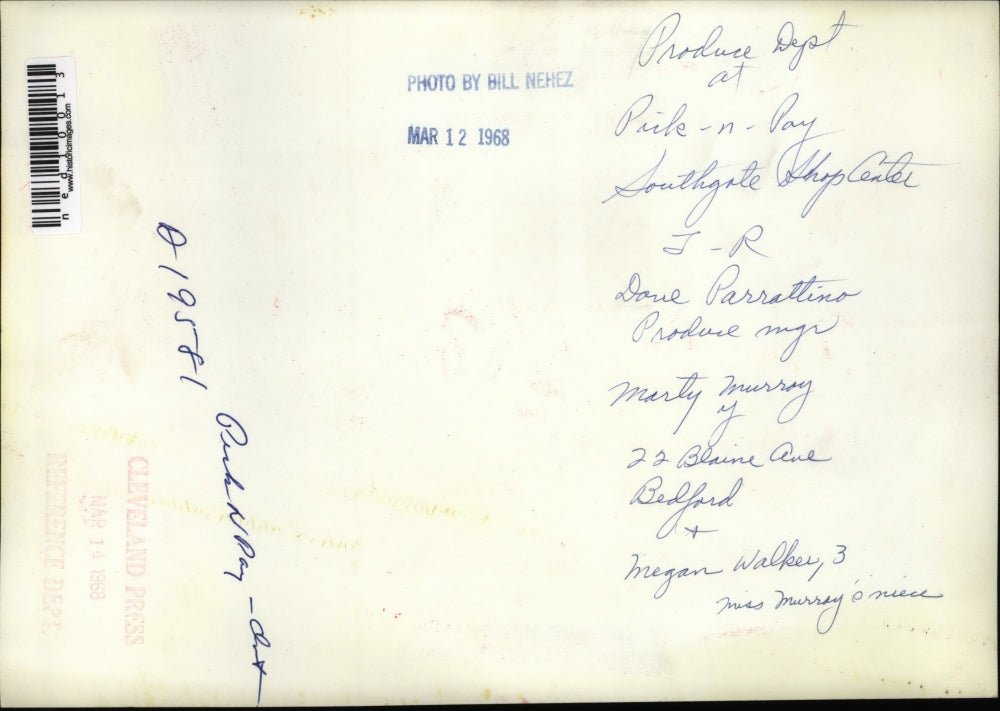 PHOTO BY BILL NEHEZ
MAR 12 1968
Produce Dept
at
Pick-n-Pay
Southgate Shop Center
J-R
Dave Parrattino
Produce mgr
Marty Murray
y
22 Blaine Ave
Bedford
+
Megan Walker, 3
Miss Murray's niece
www.historicimages.com
ned110013
A19581
Pick N Pay -
CLEVELAND PRESS
MAR 14 1968
REFERENCE DEPT.